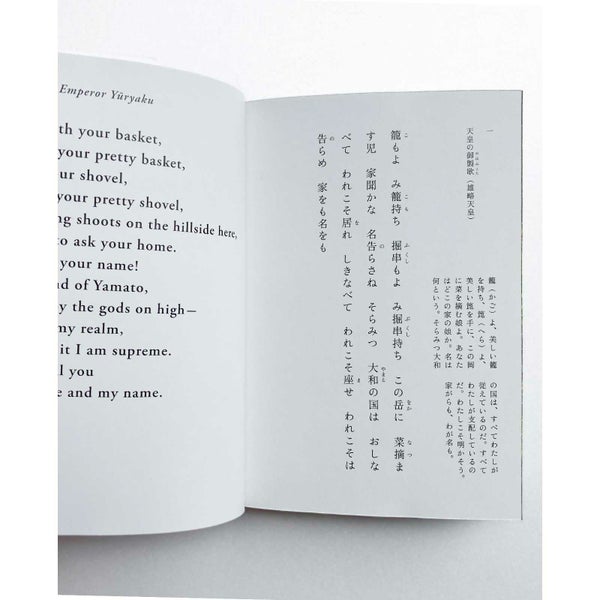 Emperor Yūryaku
th your basket,
your pretty basket,
ur shovel,
your pretty shovel,
ng shoots on the hillside here,
to ask your home.
your name!
d of Yamato,
y the gods on high—
my realm,
it I am supreme.
l you
e and my name.
一
天皇の御製歌（雄略天皇）
籠もよ　み籠持ち　掘串もよ　み掘串持ち　この岳に　菜摘ま
す児　家聞かな　名告らさね　そらみつ　大和の国は　おしな
べて　われこそ居れ　しきなべて　われこそ座せ　われこそは
告らめ　家をも名をも
籠（かご）よ、美しい籠
を持ち、箆（へら）よ、
美しい箆を手に、この岡
に菜を摘む娘よ。あなた
はどこの家の娘か。名は
何という。そらみつ大和
の国は、すべてわたしが
従えているのだ。すべて
わたしが支配しているの
だ。わたしこそ明かそう。
家がらも、わが名も。